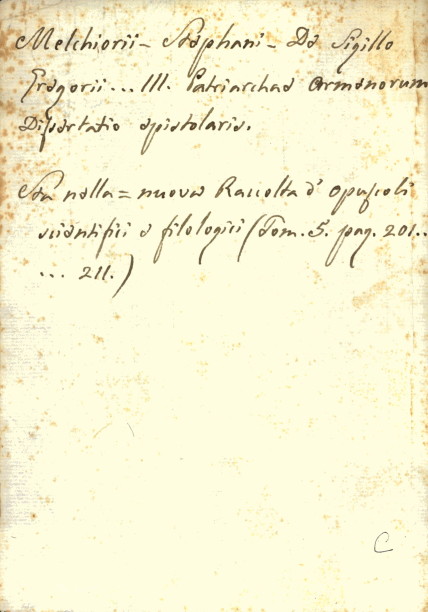 Melchiorii - Stephani - De Sigillo
Gregorii ... III. Patriarchae Armenorum
Dissertatio epistolaris.
Sta nella = nuova Raccolta d'opuscoli
scientifici e filologici (Tom. 5. pag. 201..
... 211.)
C